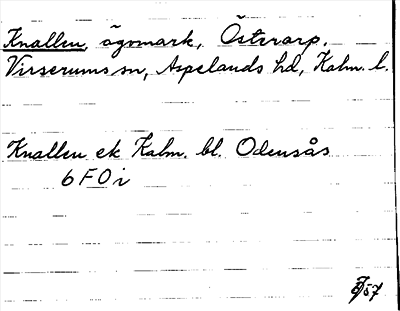 Knallen, ägomark, Östrarp,
Virserums sn, Aspelands hd, Kalm. l.
Knallen ek Kalm. bl. Odensås
6 F O i
/57